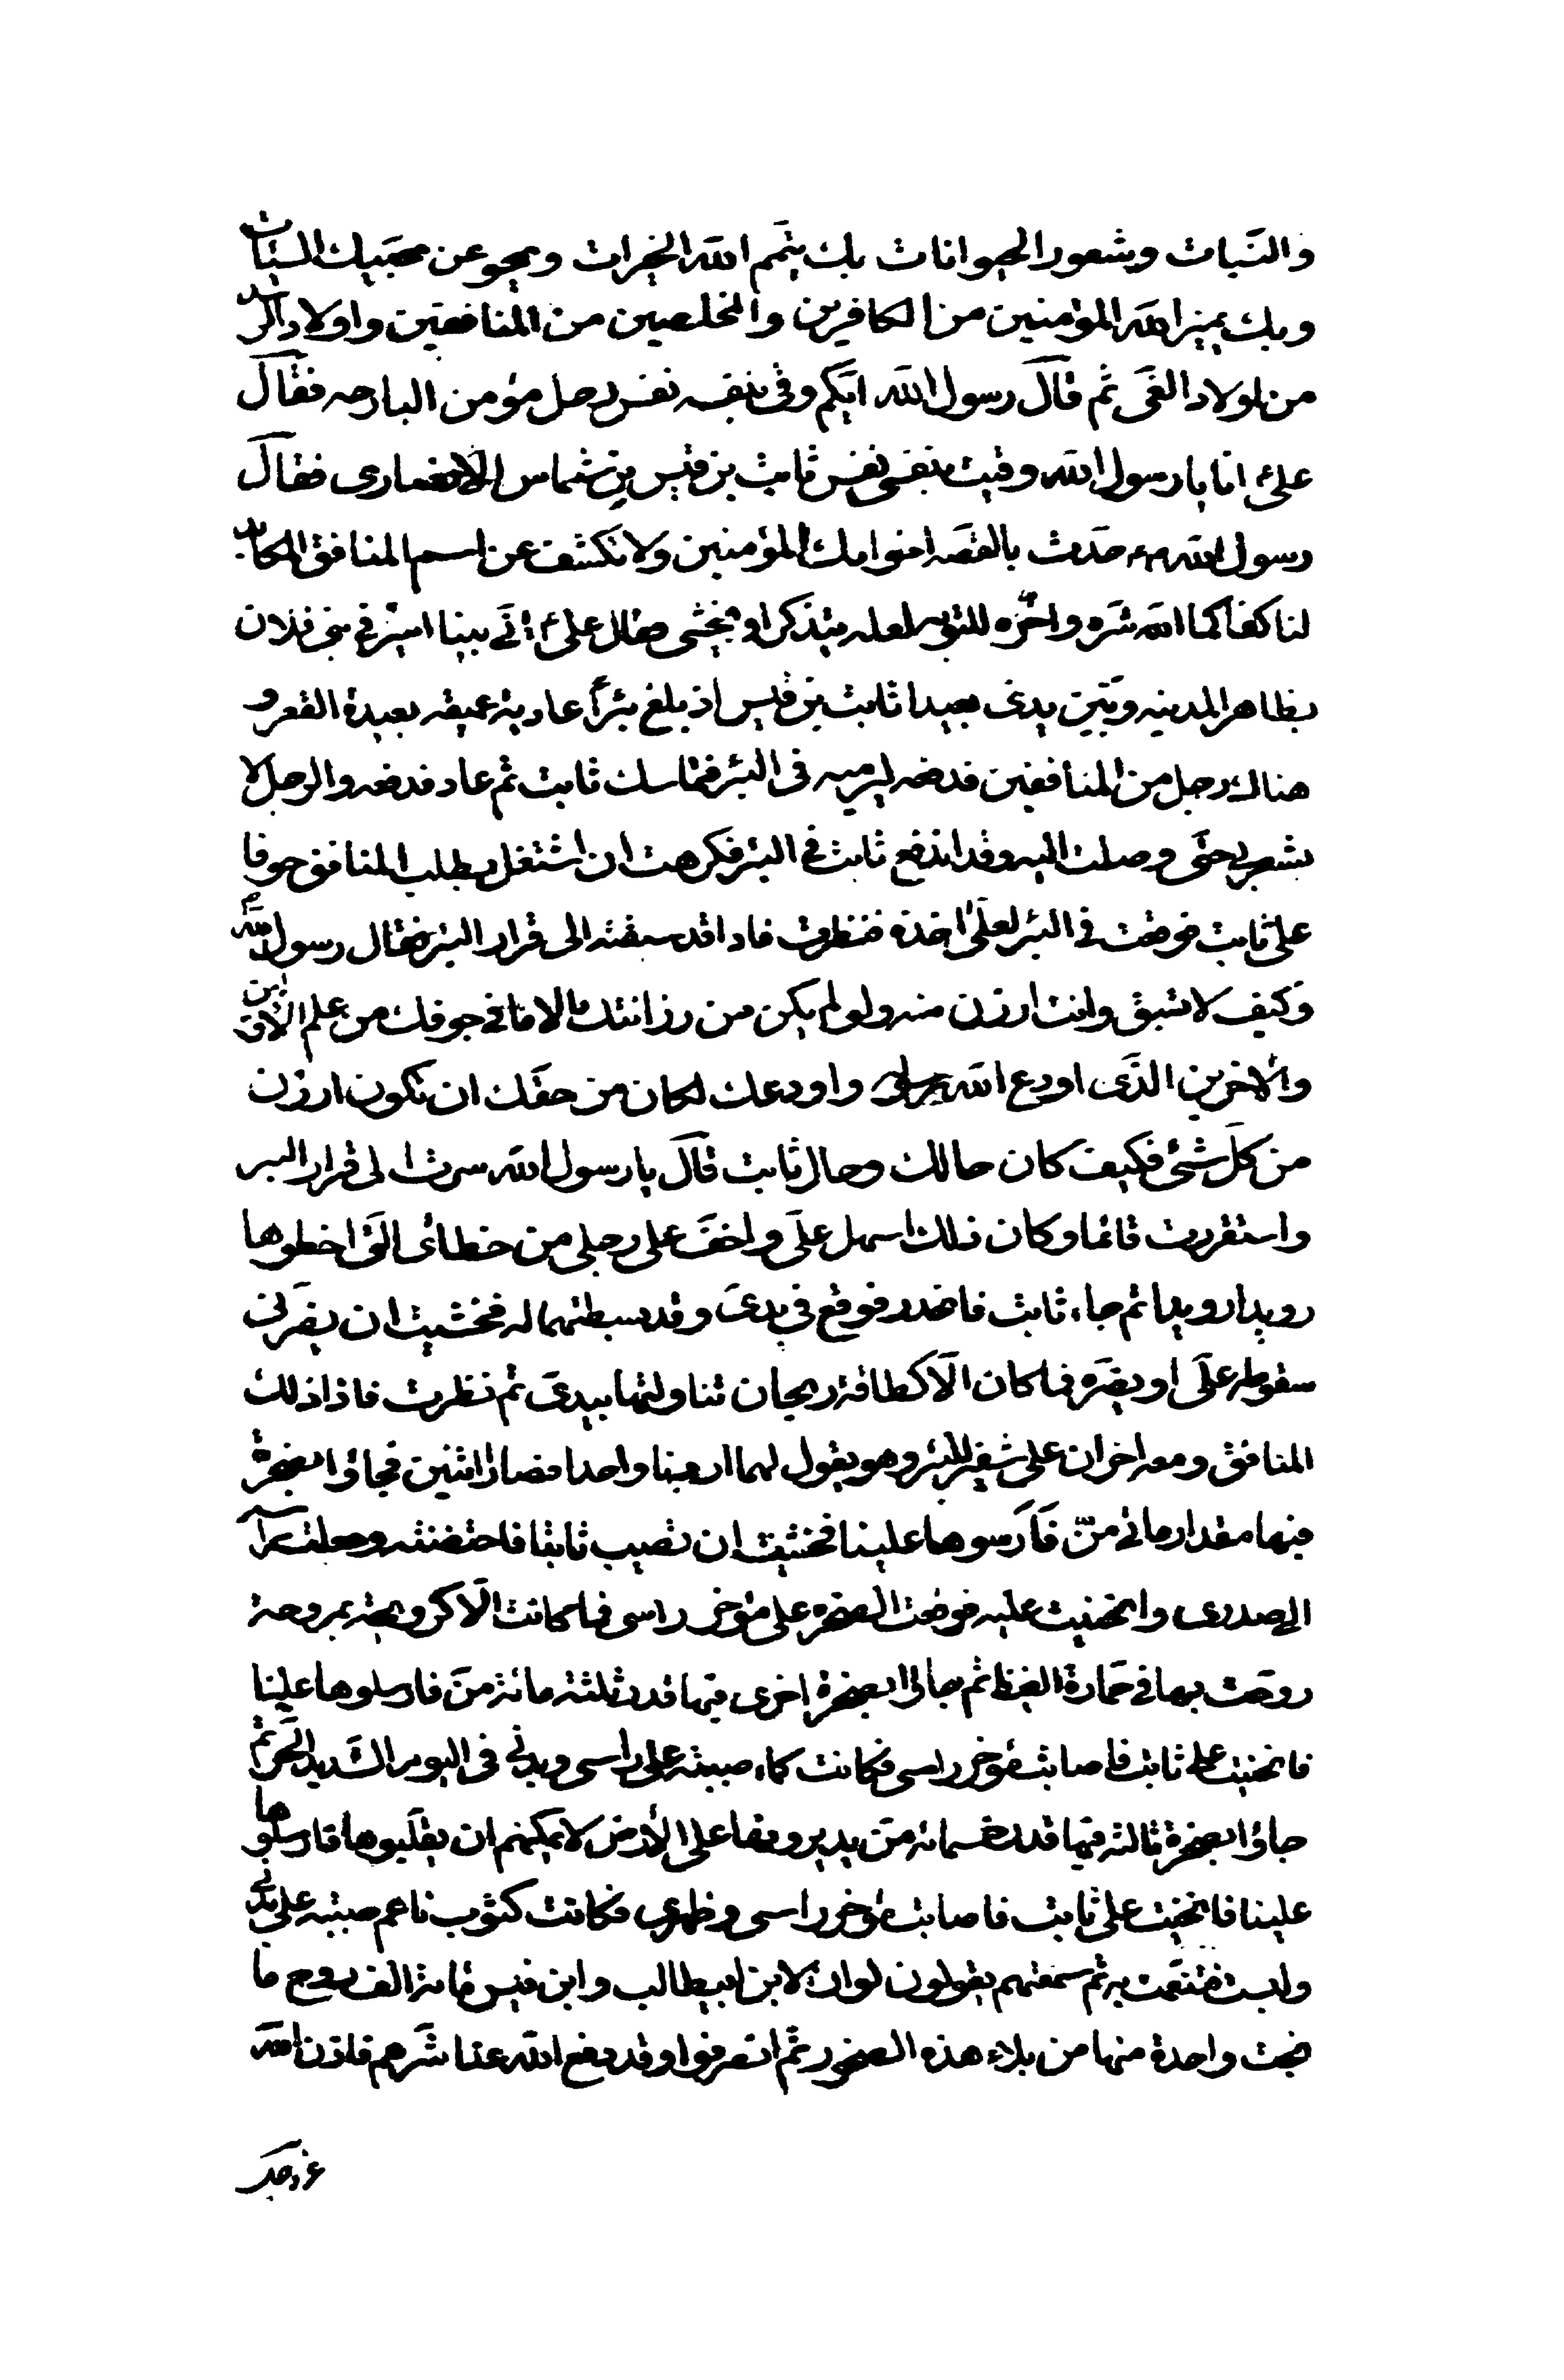 والنبات وشعور الحيوانات بك يتمم الله الخيرات ويمحو عن محبيك السيئات
وبك يميز الله المؤمنين من الكافرين والمخلصين من المنافقين واولاد الرشد
من اولاد الغى ثم قال رسول الله ايكم وقى بنفسه نفس رجل مؤمن البارحه فقال
على ع انا يا رسول الله وقيت بنفسى نفس ثابت بن قيس بن شماس الانصارى فقال
رسول الله حدث بالقصه اخوانك المؤمنين ولا تكشف عن اسم المنافق المكايد
لنا كفاكما الله شره واخره للتوبه لعله يتذكر او يخشى فقال على ع انى بينا اسير فى بنى فلان
بظاهر المدينه وبين يدى بعيدا ثابت بن قيس اذ بلغ بئرا عاديه عميقه بعيدة القعر و
هناك رجل من المنافقين فدفعه ليرميه فى البئر فتماسك ثابت ثم عاد فدفعه والرجل لا
يشعر بى حتى وصلت اليه وقد اندفع ثابت فى البئر فكرهت ان اشتغل بطلب المنافق خوفا
على ثابت فوقعت فى البئر لعلى اخذه فنظرت فاذا قد سبقته الى قرار البئر فقال رسول الله
وكيف لا تسبق وانت ارزن منه ولو لم يكن من رزانتك الا ما فى جوفك من علم الاولين
والاخرين الذى اودع الله رسوله واودعك لكان من حقك ان تكون ارزن
من كل شئ فكيف كان حالك وحال ثابت قال يا رسول الله صرت الى قرار البئر
واستقررت قائما وكان ذلك اسهل على واخف على رجلى من خطائى التى اخطوها
رويدا رويدا ثم جاء ثابت فانحدر فوقع فى يدى وقد بسطتهما له فخشيت ان يضرنى
سقوطه على او يضره فما كان الا كطاقة ريحان تناولتها بيدى ثم نظرت فاذا ذلك
المنافق ومعه اخران على شفير البئر وهو يقول لهما اردنا واحدا فصار اثنين فجاؤا بصخرة
فيها مقدار مائى من فارسوها علينا فخشيت ان تصيب ثابتا فاحتضنته وجعلت راسه
الى صدرى وانحنيت عليه فوقعت الصخره على مؤخر راسى فما كانت الا كترويحة بمروحة
روحت بها فى حمارة القيظ ثم جاؤا بصخرة اخرى فيها قدر ثلثة مائة من فارسلوها علينا
فانحنيت على ثابت فاصابت مؤخر راسى فكانت كماء صببته على راسى وبدنى فى اليوم الشديد الحر ثم
جاؤا بصخرة ثالثه فيها قدر خمسمائه من يديرونها على الارض لا يمكنهم ان يقلبوها فارسلوها
علينا فانحنيت على ثابت فاصابت مؤخر راسى وظهرى فكانت كثوب ناعم صببته على بدنى
ولبسته فتنعمت به ثم سمعتهم يقولون لو ان لابن ابيطالب وابن قيس مائة الف روح ما
نجت واحدة منها من بلاء هذه الصخور ثم انصرفوا وقد دفع الله عنا شرهم فاذن الله
عز وجل